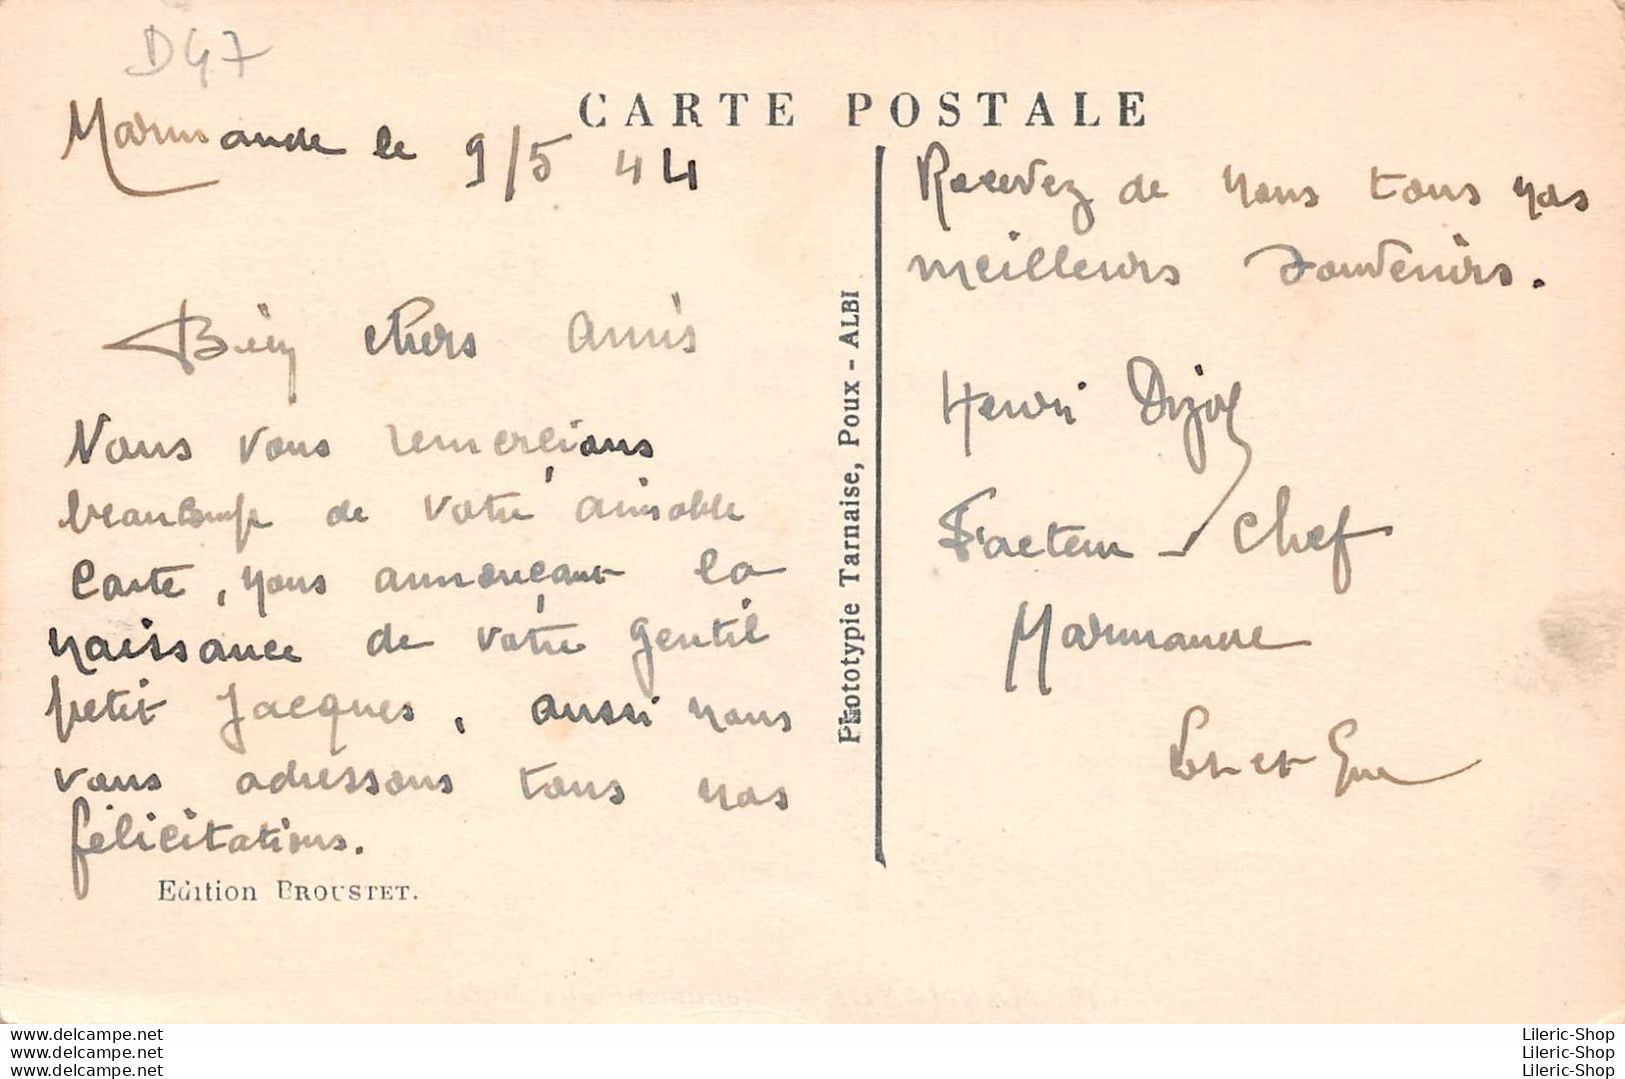 D47
CARTE POSTALE
Marmande le 9/5 44
Bien chers amis
Nous vous remercions
beaucoup de votre aimable
carte, nous annonçant la
naissance de votre gentil
petit Jacques, aussi nous
vous adressons tous nos
félicitations.
Edition BROUSTET.
Phototypie Tarnaise, Poux - ALBI
Recevez de nous tous nos
meilleurs souvenirs.
Henri
Facteur - Chef
Marmande
Lot et Gne
www.delcampe.net
www.delcampe.net
www.delcampe.net
Lileric-Shop
Lileric-Shop
Lileric-Shop